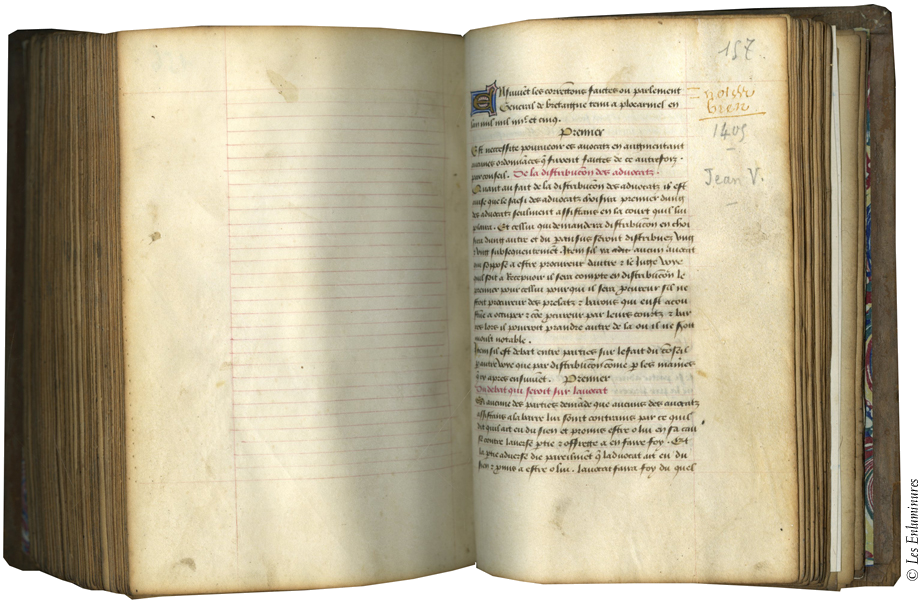 157.
Ensuivent les corrections faictes ou parlement
General de bretaigne tenu a ploearmel en
lan mil iiii et cinq.
notez
bien
Premier
1405
Est necessite pourveoir es avocatz en augmentant
ordonnances q furent faictes de ce autreffoiz.
par conseil. De la distribucon des advocatz.
Jean V.
Quant au fait de la distribucon des advocatz il est
que le des advocatz choisira premier dung
des advocatz seulment assistans en la court quil lui
plaira. Et cellui qui demandera distribucon en choi
dung autre et du seront distribuez ung
subsequentement. Item sil ya aucun avocat
que se a estre procureur dautre le Juge
quil soit a il sera compte en distribucon le
premier pour cellui pourquoi il sera pcureur sil ne
soit procureur des prelatz barons qui
a occuper coe pcureur par leurs
lors il pourroit prandre autre de la ou il ne
moult notable.
Item sil est debat entre parties sur le fait du conseil
autre que par distribucon come p les
apres ensuivet. Premier
Du debat qui seroit sur lavocat
Si aucune des parties demade que aucuns des avocatz
assistans a la barre lui soint contrains par ce quil
dit quil ait eu du sien et promis estre o lui en sa cau
se contre laverse ptie offrege a en faire foy. Et
la ptie adverse die pareilmet q ladvocat ait eu du
sien pmis a estre o lui. lavocat faira foy du quel
© Les Enluminures